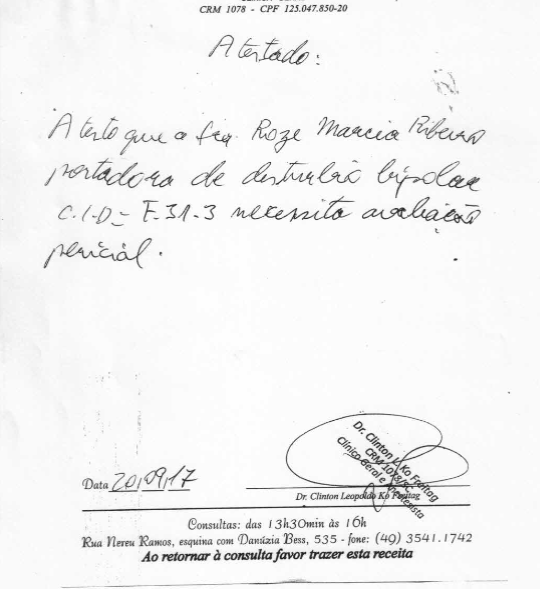 CRM 1078 - CPF 125.047.850-20
Atestado:
Atesto que a Sra Roze Marcia Ribeiro
portadora de disturbio bipolar
C.I.D= F.31.3 necessita avaliação
pericial.
Dr. Clinton L. Ko Freitag
CRM 1078/SC
Clínico Geral e
Data 20/09/17
Dr. Clinton Leopoldo Ko Freitag
Consultas: das 13h30min às 16h
Rua Nereu Ramos, esquina com Danúzia Bess, 535 - fone: (49) 3541.1742
Ao retornar à consulta favor trazer esta receita